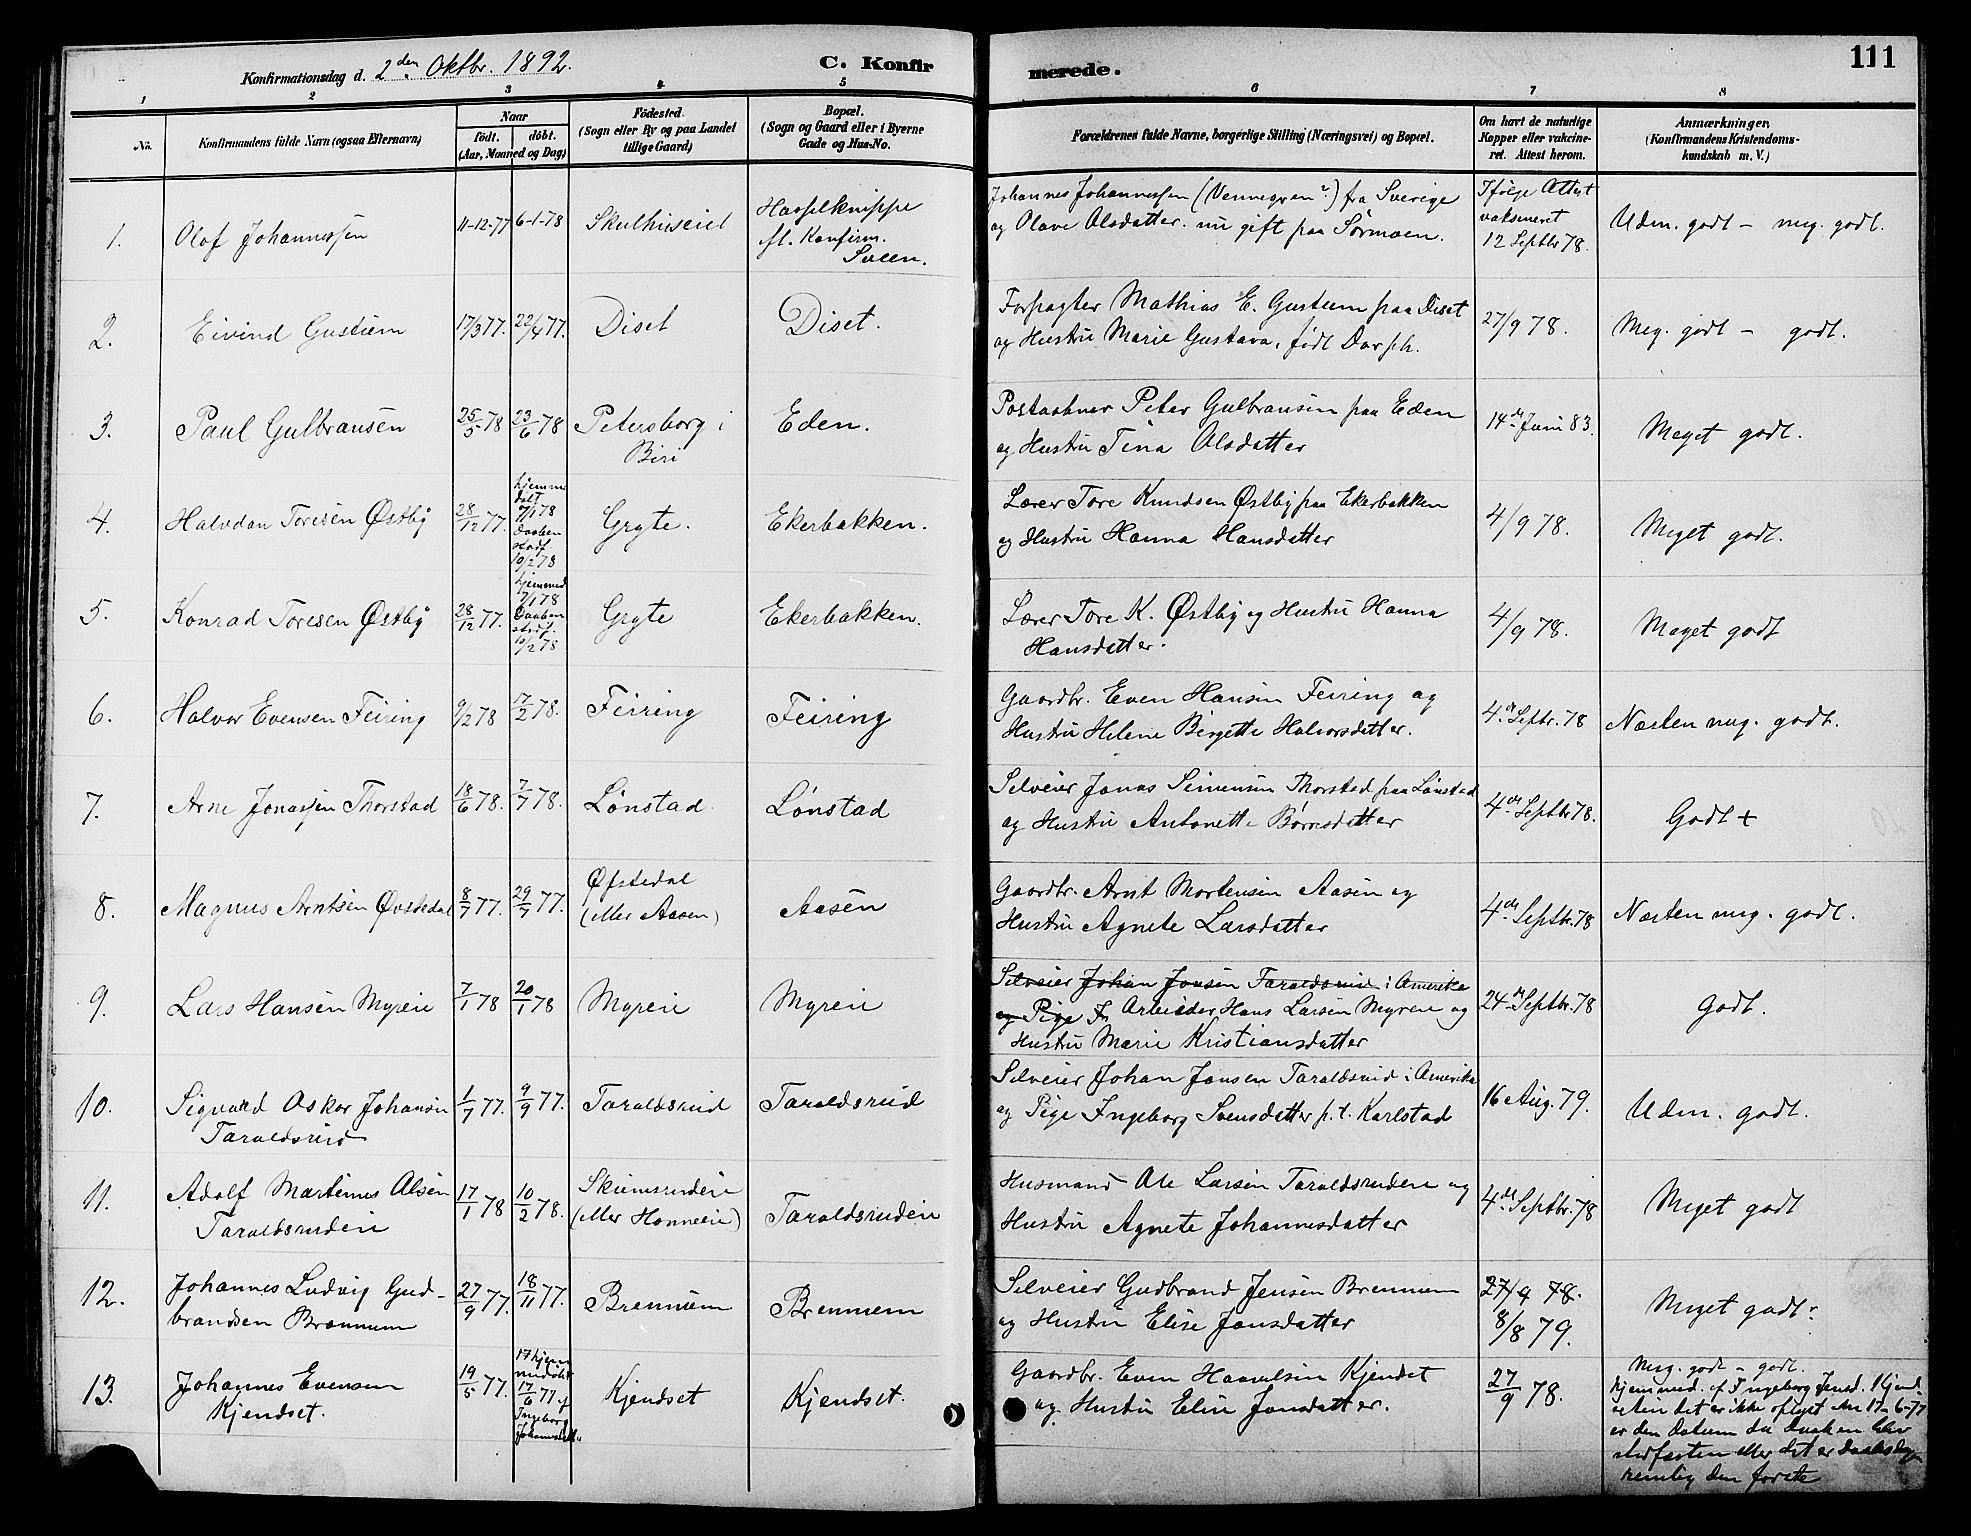 Konfirmationsdag d. 2den Oktbr. 1892.
C. Konfirmerede.
111
1 2 3 4 5 6 7 8
No.
Konfirmandens fulde Navn (ogsaa Efternavn)
Naar
födt. döbt.
(Aar, Maaned og Dag)
Födested.
(Sogn eller By og paa Landet
tillige Gaard)
Bopæl.
(Sogn og Gaard eller i Byerne
Gade og Hus-No.
Forældrenes fulde Navne, borgerlige Stilling (Næringsvei) og Bopæl.
Om havt de naturlige
Kopper eller vakcine-
ret. Attest herom.
Anmærkninger,
(Konfirmandens Kristendoms-
kundskab m. V.)
1.
Olaf Johannessen
11-12-77
6-1-78
Skulhuseiet
Hasselknippe
fl. Konfirm.
Sveen.
Johannes Johannessen (Vennegren?) fra Sverige
og Olave Olsdatter. nu gift paa Sørmoen.
Ifølge Attest
vaksineret
12 Septbr 78.
Udm. godt – meg. godt.
2.
Eivind Gustum
17/3 77.
22/4 77.
Diset
Diset.
Forpagter Mathias E. Gustum paa Diset
og Hustru Marie Gustava, født Dorph.
27/9 78.
Meg. godt – godt.
3.
Paul Gulbransen
25/5 78
23/6 78
Petersborg i
Biri
Eden.
Postaabner Peter Gulbransen paa Eden
og Hustru Tina Olsdatter
14de Juni 83.
Meget godt.
4.
Halvdan Toresen Østby
28/12 77.
hjemme
døbt
7/1 78
Daaben
stadf.
10/2 78
Gryte.
Ekerbakken.
Lærer Tore Knudsen Østby paa Ekerbakken
og Hustru Hanna Hansdatter
4/9 78.
Meget godt.
5.
Konrad Toresen Østby
28/12 77.
hjemmed.
7/1 78
Daaben
stadf.
10/2 78
Gryte
Ekerbakken.
Lærer Tore K. Østby og Hustru Hanna
Hansdatter.
4/9 78.
Meget godt
6.
Halvor Evensen Feiring
9/2 78
17/2 78.
Feiring
Feiring
Gaardbr. Even Hansen Feiring og
Hustru Helene Birgette Halvorsdatter.
4de Septbr. 78
Næsten meg. godt.
7.
Arne Jonassen Thorstad
18/6 78.
7/7 78.
Lønstad
Lønstad
Selveier Jonas Simensen Thorstad paa Lønstad
og Hustru Antonette Børresdatter
4de Septbr 78.
Godt +
8.
Magnus Arntsen Øvstedal
8/7 77.
29/7 77.
Øfstedal
(eller Aasen)
Aasen
Gaardbr. Arnt Mortensen Aasen og
Hustru Agnete Larsdatter
4de Septbr. 78
Næsten meg. godt.
9.
Lars Hansen Myren
7/1 78
20/1 78
Myren
Myren
Selveier Johan Jonsen Taraldsrud i Amerika
og Pige I. Arbeider Hans Larsen Myren og
Hustru Marie Kristiansdatter
24de Septbr. 78
Godt.
10.
Sigvard Oskar Johansen
Taraldsrud
1/7 77.
9/9 77.
Taraldsrud
Taraldsrud
Selveier Johan Jonsen Taraldsrud i Amerika
og Pige Ingeborg Svensdatter p. t. Karlstad
16 Aug. 79.
Udm. godt.
11.
Adolf Martinus Olsen
Taraldsruden
17/1 78
10/2 78.
Skiumsruden
(eller Honneen)
Taraldsruden
Husmand Ole Larsen Taraldsruden og
Hustru Agnete Johannesdatter
4de Septbr. 78
Meget godt
12.
Johannes Ludvig Gud-
brandsen Brennum
27/9 77.
18/11 77.
Brennum
Brennum
Selveier Gudbrand Jensen Brennum
og Hustru Elise Jonsdatter
27/9 78.
8/8 79.
Meget godt.
13.
Johannes Evensen
Kjendset.
19/5 77.
17 hjem
medøbt
17/6 77 af
Ingeborg
Kjendset
Kjendset.
Gaardbr. Even Haavelsen Kjendset
og Hustru Eline Jonsdatter.
27/9 78.
Meg. godt – godt.
hjemmed. af Ingeborg Jensd. Kjend-
seten det er ikke oplyst om 17-6-77
er den Datum da daaben blev
stadfæsten eller det er daabsdagen
nemlig den første